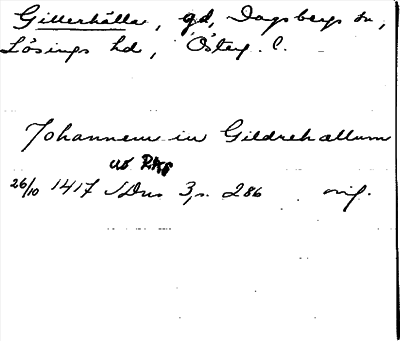 Gillerhälla, gd, Dagsbergs sn,
Lösings hd, Österg. l.
Johannem in Gildrehallum
av RAp
26/10 1417 SDns 3, s. 286 orig.